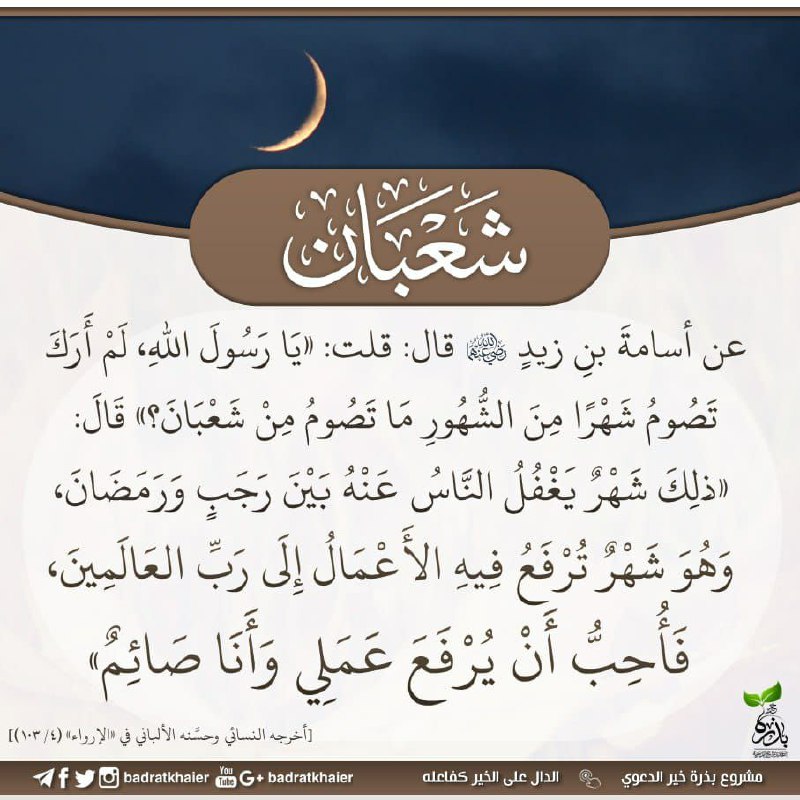 شَعْبَان
عن أسامةَ بنِ زيدٍ رضي الله عنهما قال: قلت: «يَا رَسُولَ اللهِ، لَمْ أَرَكَ
تَصُومُ شَهْرًا مِنَ الشُّهُورِ مَا تَصُومُ مِنْ شَعْبَانَ؟» قَالَ:
«ذلِكَ شَهْرٌ يَغْفُلُ النَّاسُ عَنْهُ بَيْنَ رَجَبٍ وَرَمَضَانَ،
وَهُوَ شَهْرٌ تُرْفَعُ فِيهِ الأَعْمَالُ إِلَى رَبِّ العَالَمِينَ،
فَأُحِبُّ أَنْ يُرْفَعَ عَمَلِي وَأَنَا صَائِمٌ»
[أخرجه النسائي وحسَّنه الألباني في «الإرواء» (٤/ ١٠٣)]
بذرة خير
مشروع بذرة خير الدعوي الدال على الخير كفاعله badratkhaier G+ You Tube badratkhaier